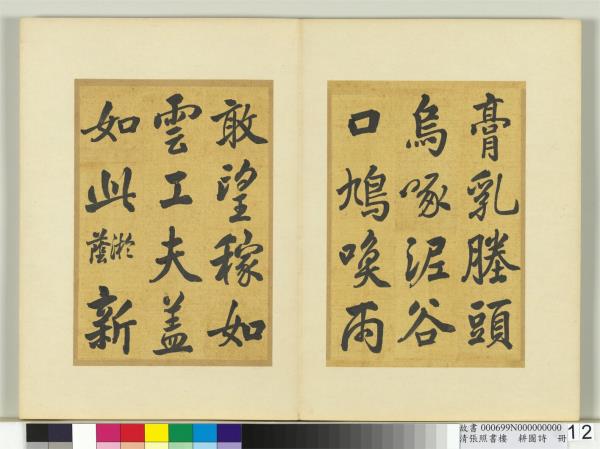 膏乳塍頭
烏啄泥谷
口鳩喚雨
敢望稼如
雲工夫蓋
如此 淤蔭 新
故書 000699N000000000
清張照書樓 耕圖詩 冊
12